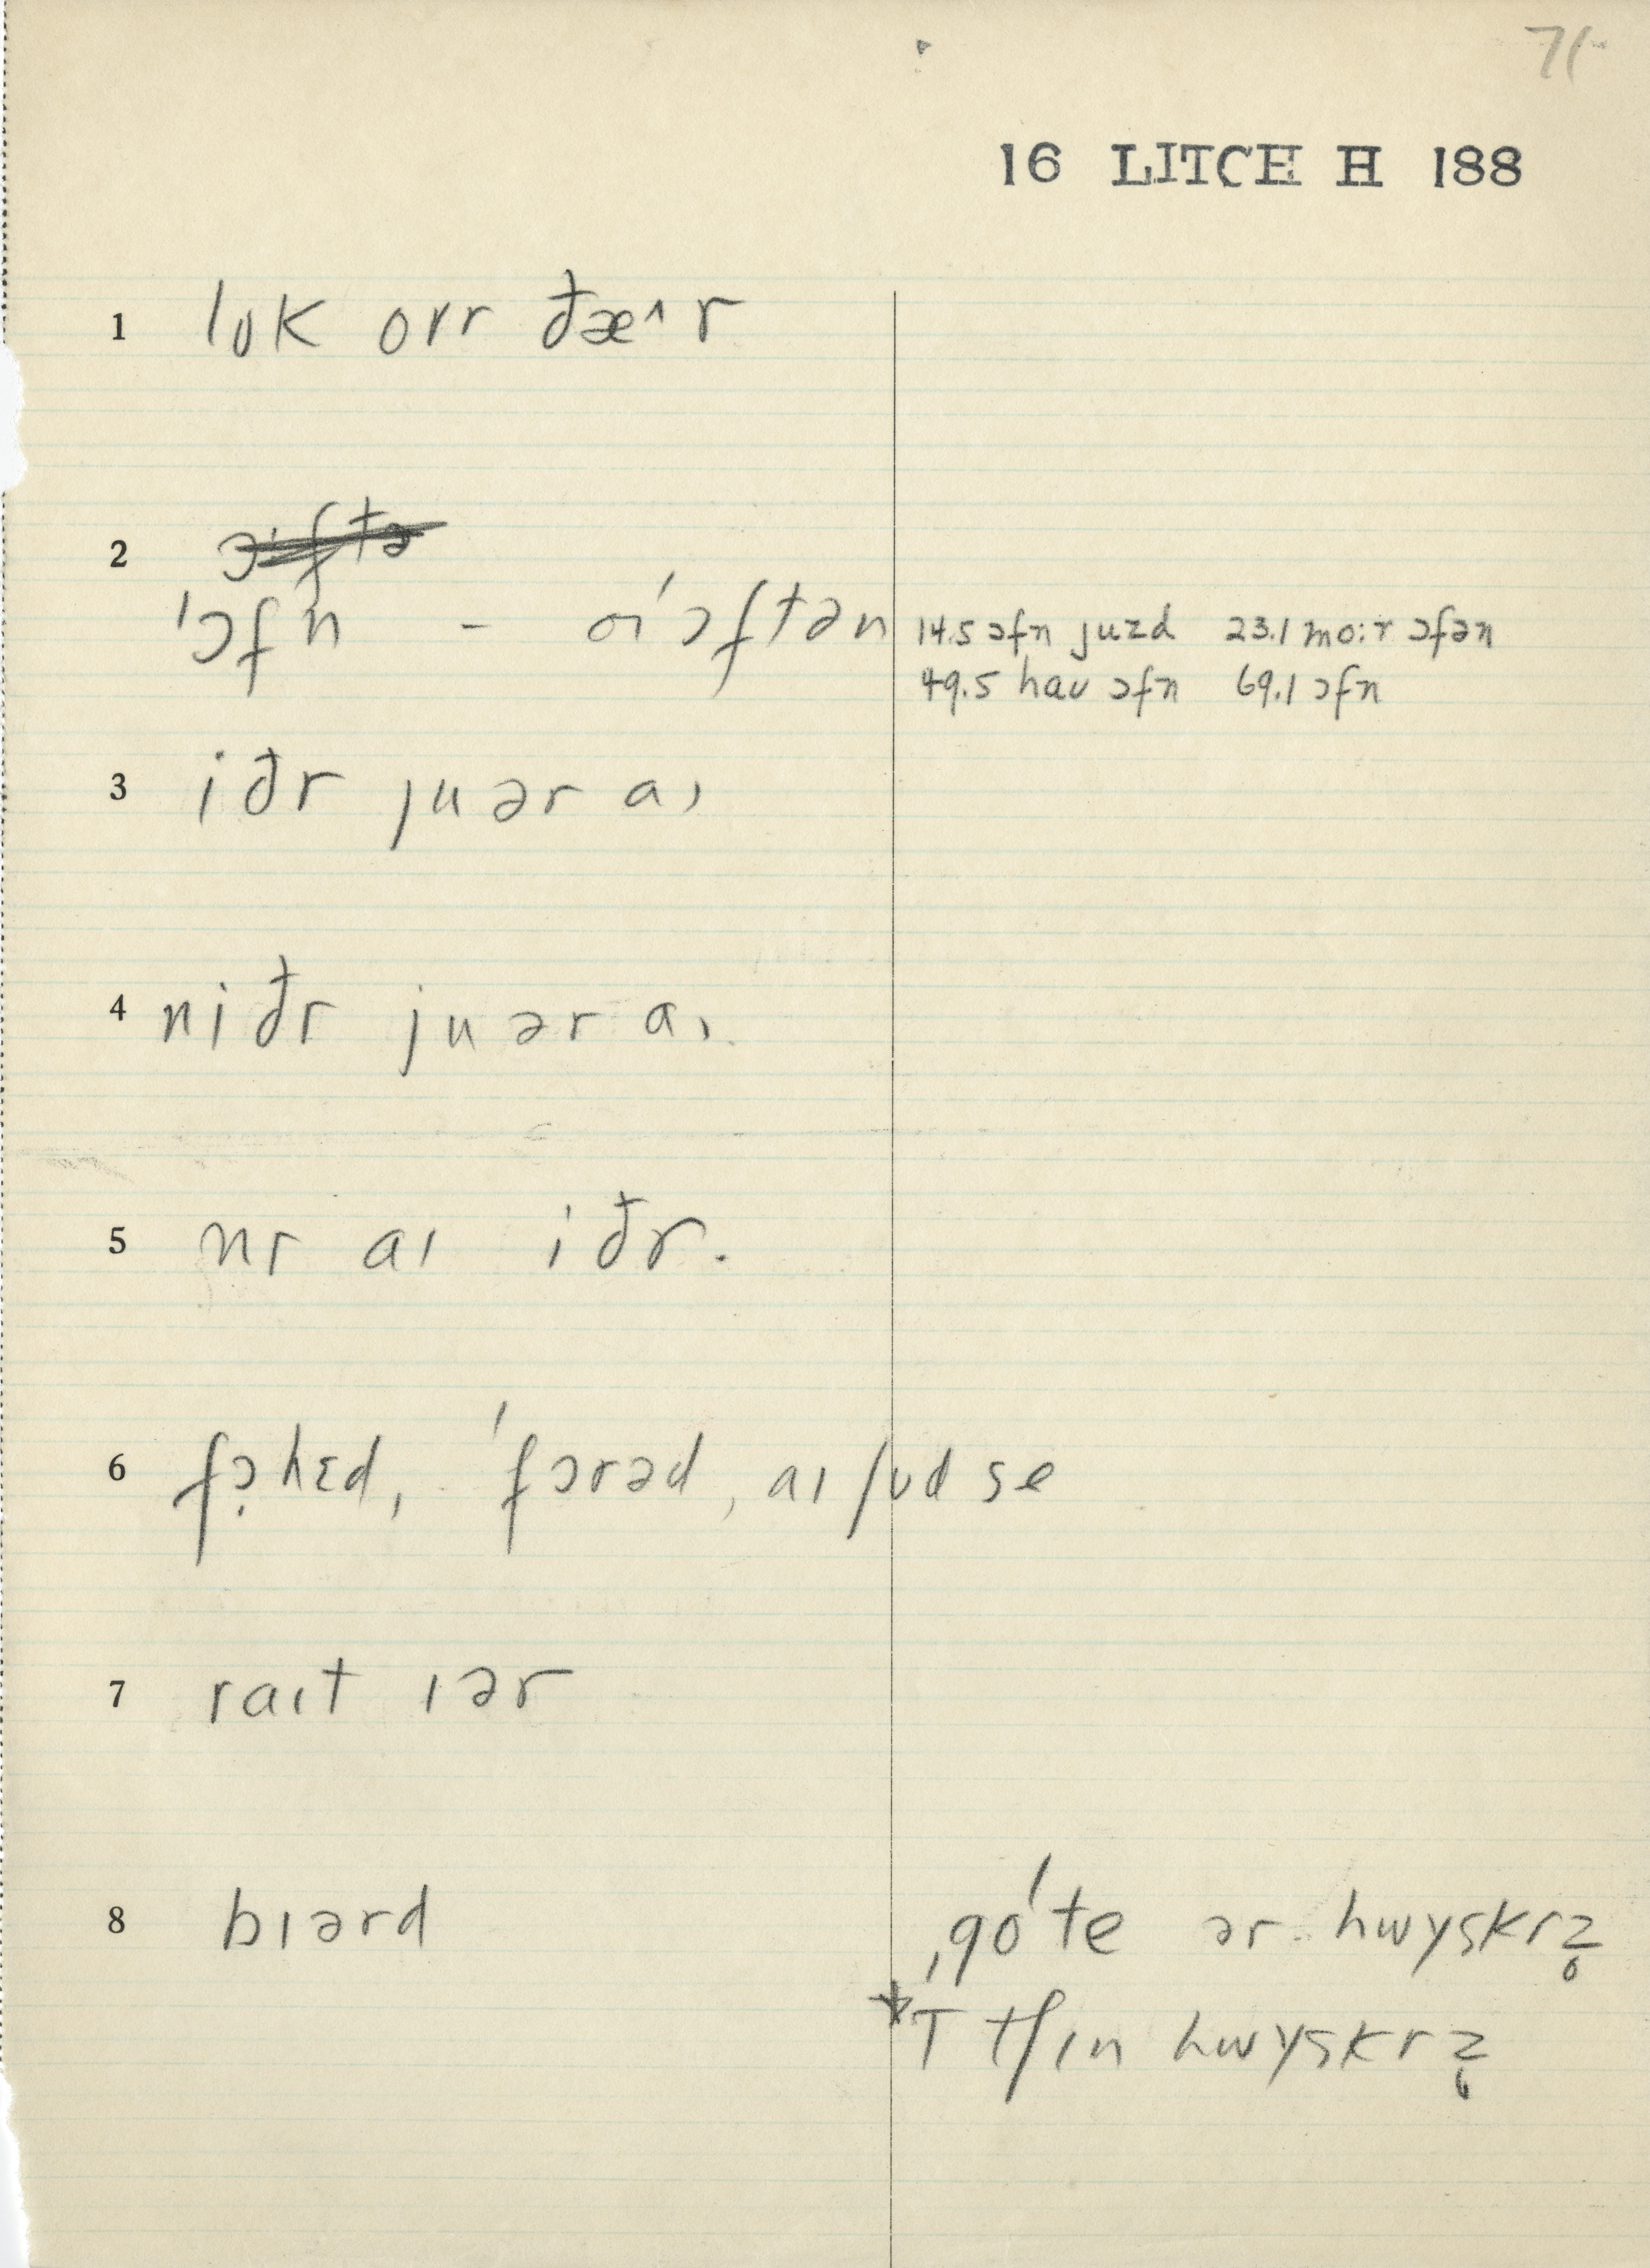 71
16 LITCH H 188
1 lʊk oɪr ðæ˄r
2 ɔfn - ɔftən 14.5 ɔfn juzd 23.1 mo:r ɔfən
49.5 haʊ ɔfn 69.1 ɔfn
3 iðr juər aɪ
4 niðr juər aɪ
5 nr aɪ iðr.
6 fɔ̣hɛd, 'fɔrəd, aɪ ʃʊd se
7 raɪt ɪər
8 bɪərd ˌgo'te ər hwyskrz̥
*T tʃɪn hwyskrz̥